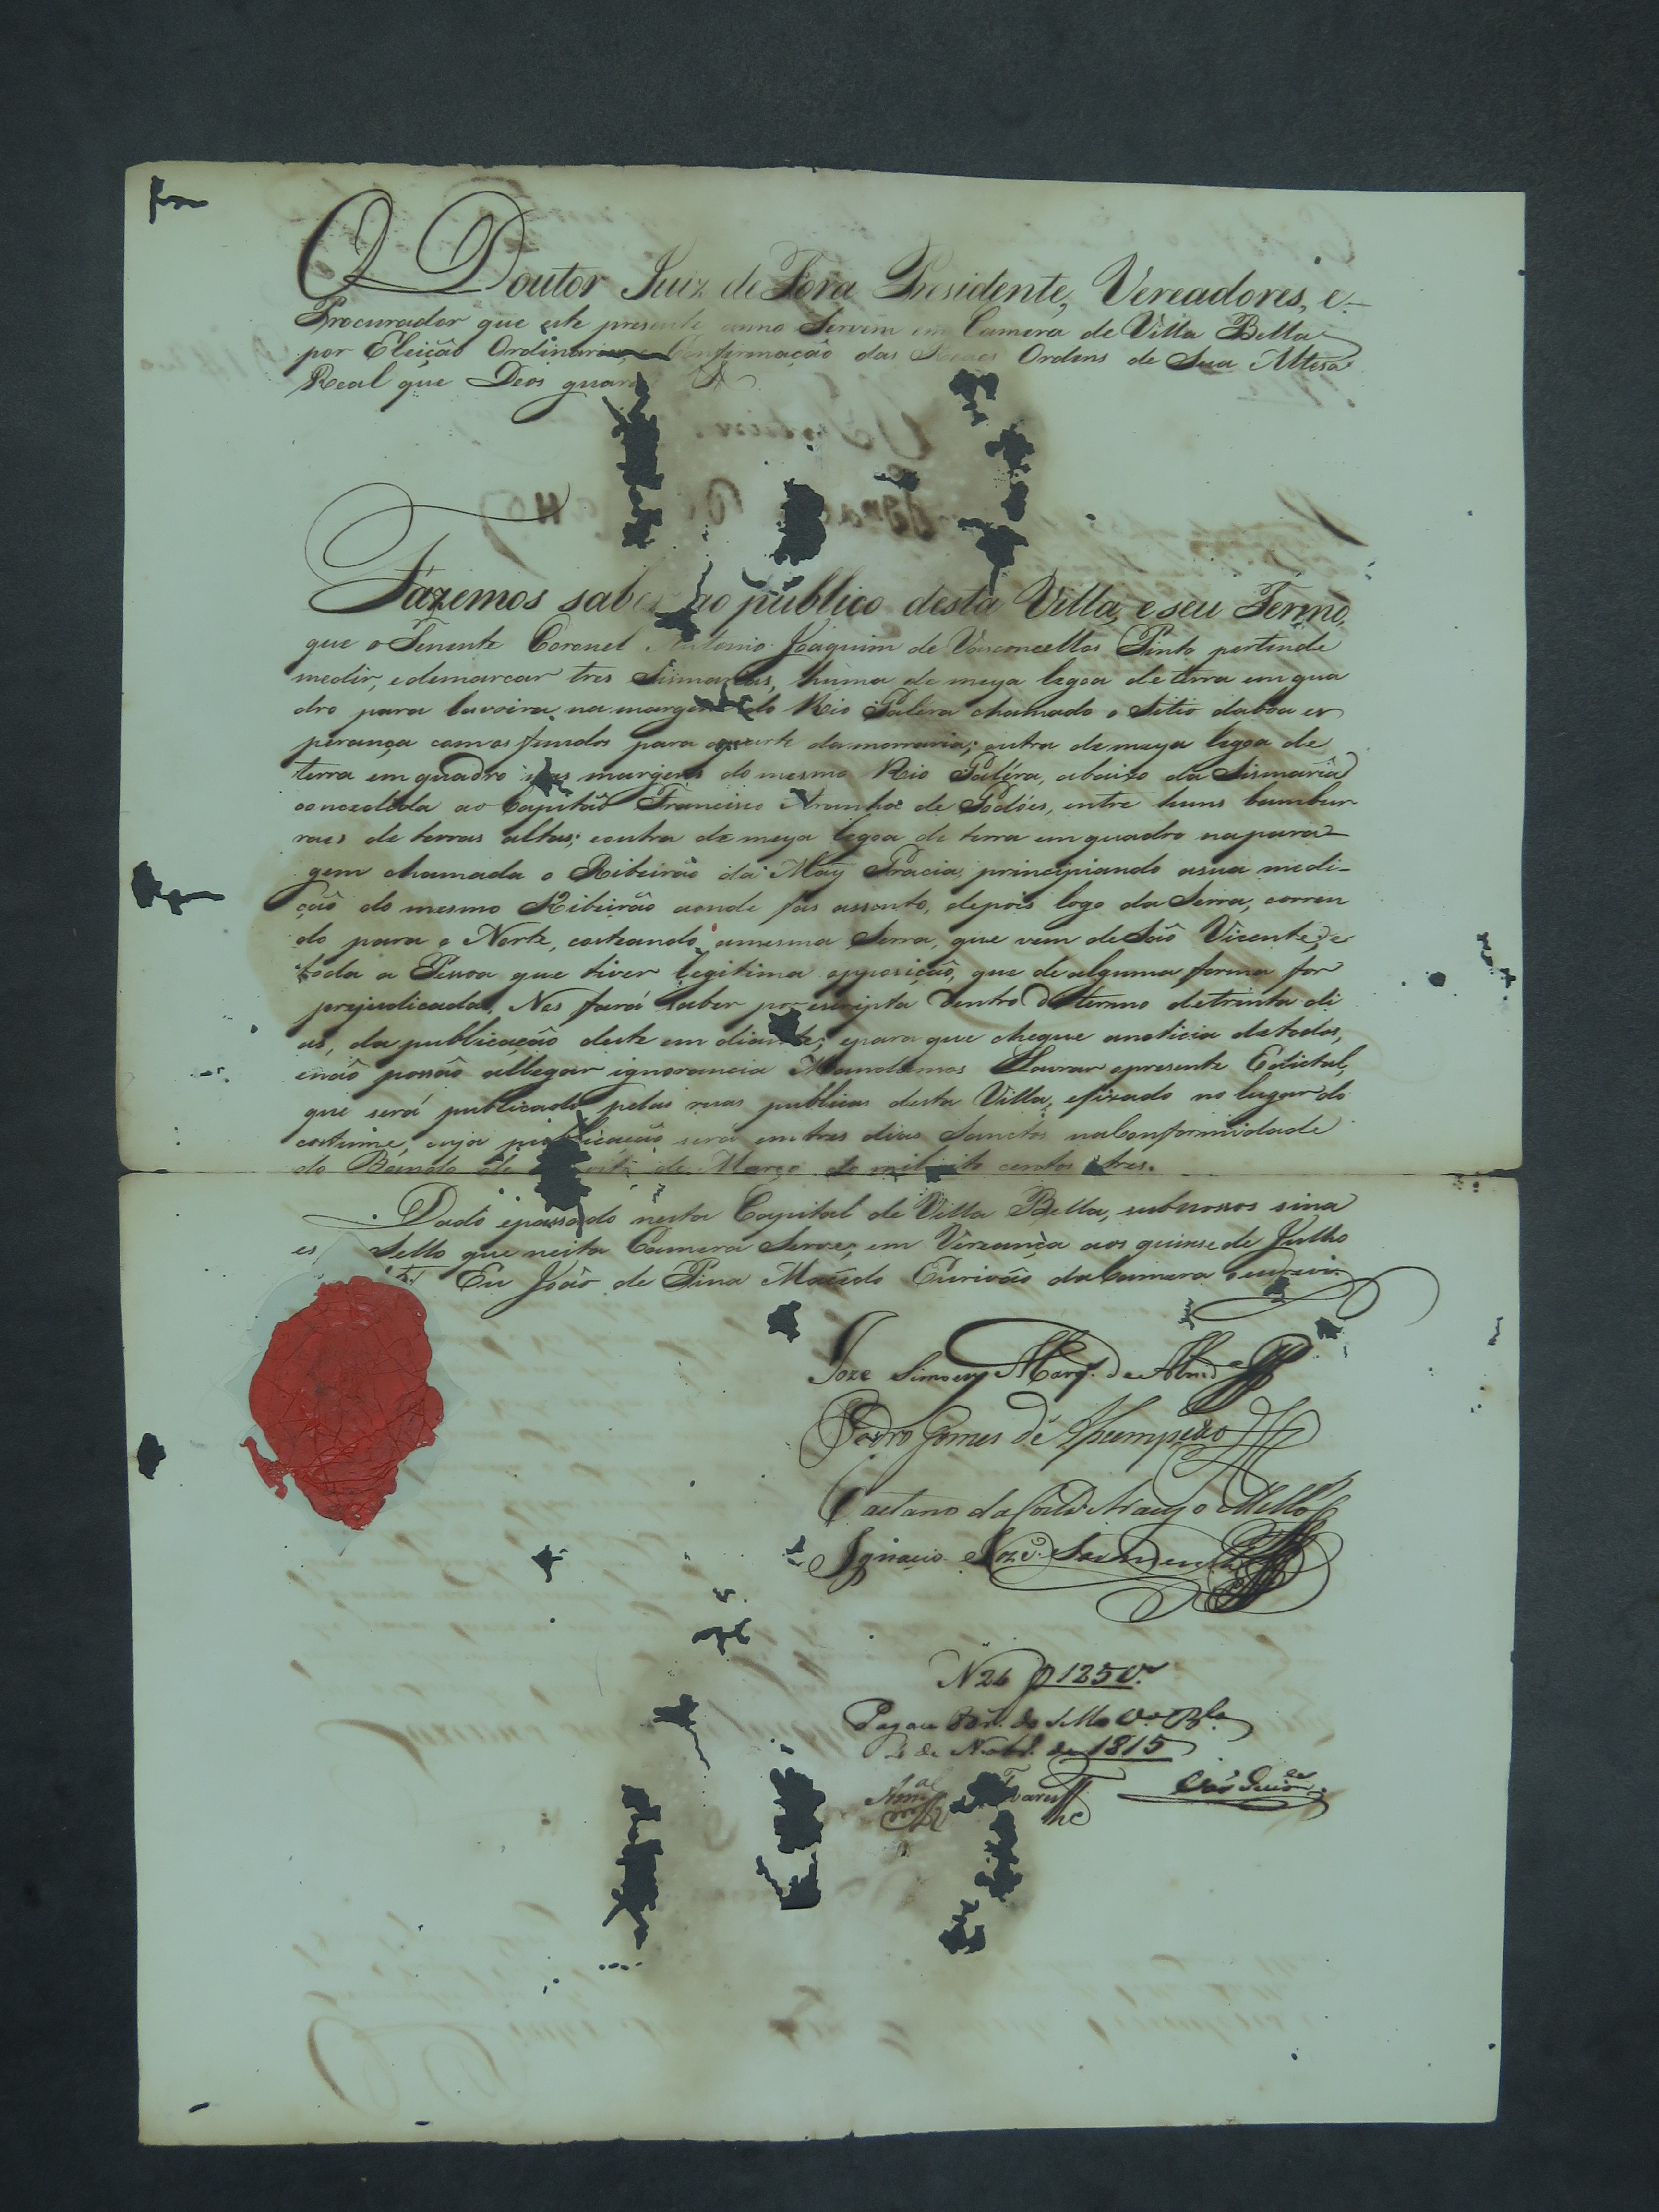 O Doutor Juiz de Fora Presidente, Vereadores, e
Procurador que este presente anno Servem em Camera de Villa Bella
por Eleição Ordinaria, e Confirmação das Reaes Ordens de Sua Altesa
Real que Deos guar
Fazemos saber ao publico desta Villa, e seu Termo,
que o Tenente Coronel Antonio Joaquim de Vasconcellos Pinto pertende
medir, e demarcar tres Sismarias, huma de meya legoa de terra em qua
dro para lavoira, na margem do Rio Galera chamado o Sitio da boa es
perança com os fundos para a parte da morraria; outra de meya legoa de
terra em quadro nas margens do mesmo Rio Galéra, abaixo da Sismaria
concedida ao Capitão Francisco Aranha de Godóes, entre huns bambur
raes de terras altas; e outra de meya legoa de terra em quadro na para
gem chamada o Ribeirão da May Gracia, principiando a sua medi-
ção do mesmo Ribeirão aonde fas assento, depois logo da Serra, corren
do para o Norte, costeando a mesma Serra, que vem de São Vicente; e
toda a Pessoa que tiver legitima opposição, que de alguma forma for
prejudicada, Nos fará saber por escripta dentro do termo de trinta di
as, da publicação deste em diante; e para que chegue a noticia de todos,
e não possão allegar ignorancia Mandamos Lavrar o presente Edictal,
que será publicado pelas ruas publicas desta Villa, e fixado no lugar do
costume, cuja publicação será em tres dias Sanctos na Conformidade
do Bando de de Março de mil oito centos e tres.
Dado e passado nesta Capital de Villa Bella, sub nossos sina
es Sello que nesta Camera Serve; em Vereança aos quinse de Julho
Eu João de Pina Macedo Escrivão da Camera o escrevi.
Joze Simoens Marq. de
Pedro Gomes de
Caetano da Costa Araujo e Mello
Ignacio Jozé Sarmento
N 26 1250
Pagou do Sello
de Novbr. de 1815
Tavares